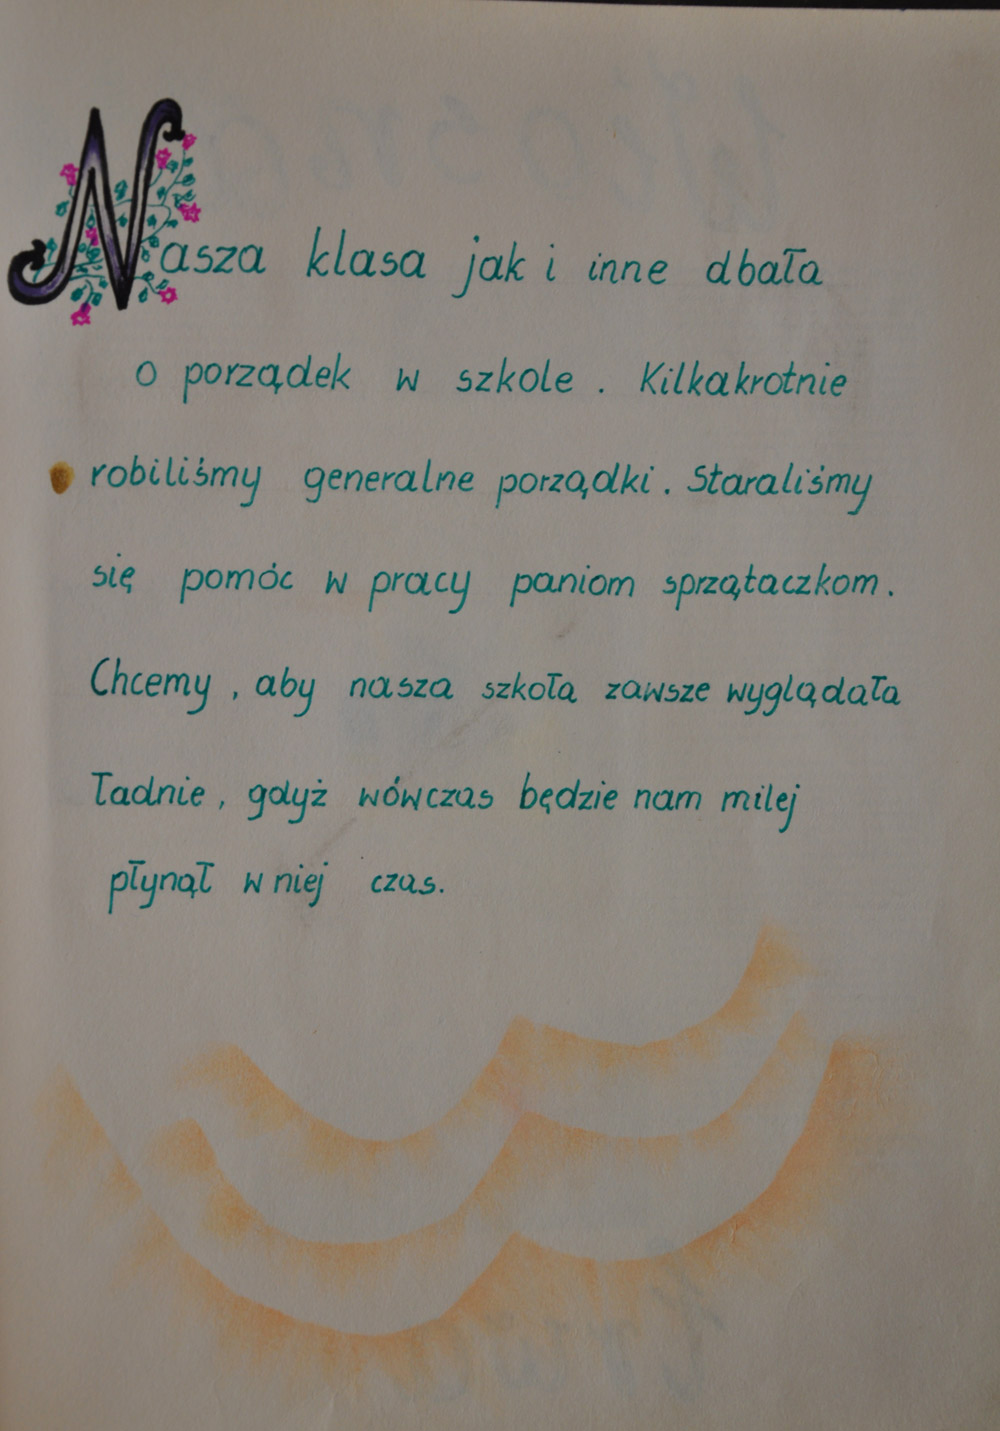 Nasza klasa jak i inne dbała
o porządek w szkole. Kilkakrotnie
robiliśmy generalne porządki. Staraliśmy
się pomóc w pracy paniom sprzątaczkom.
Chcemy, aby nasza szkoła zawsze wyglądała
ładnie, gdyż wówczas będzie nam milej
płynął w niej czas.